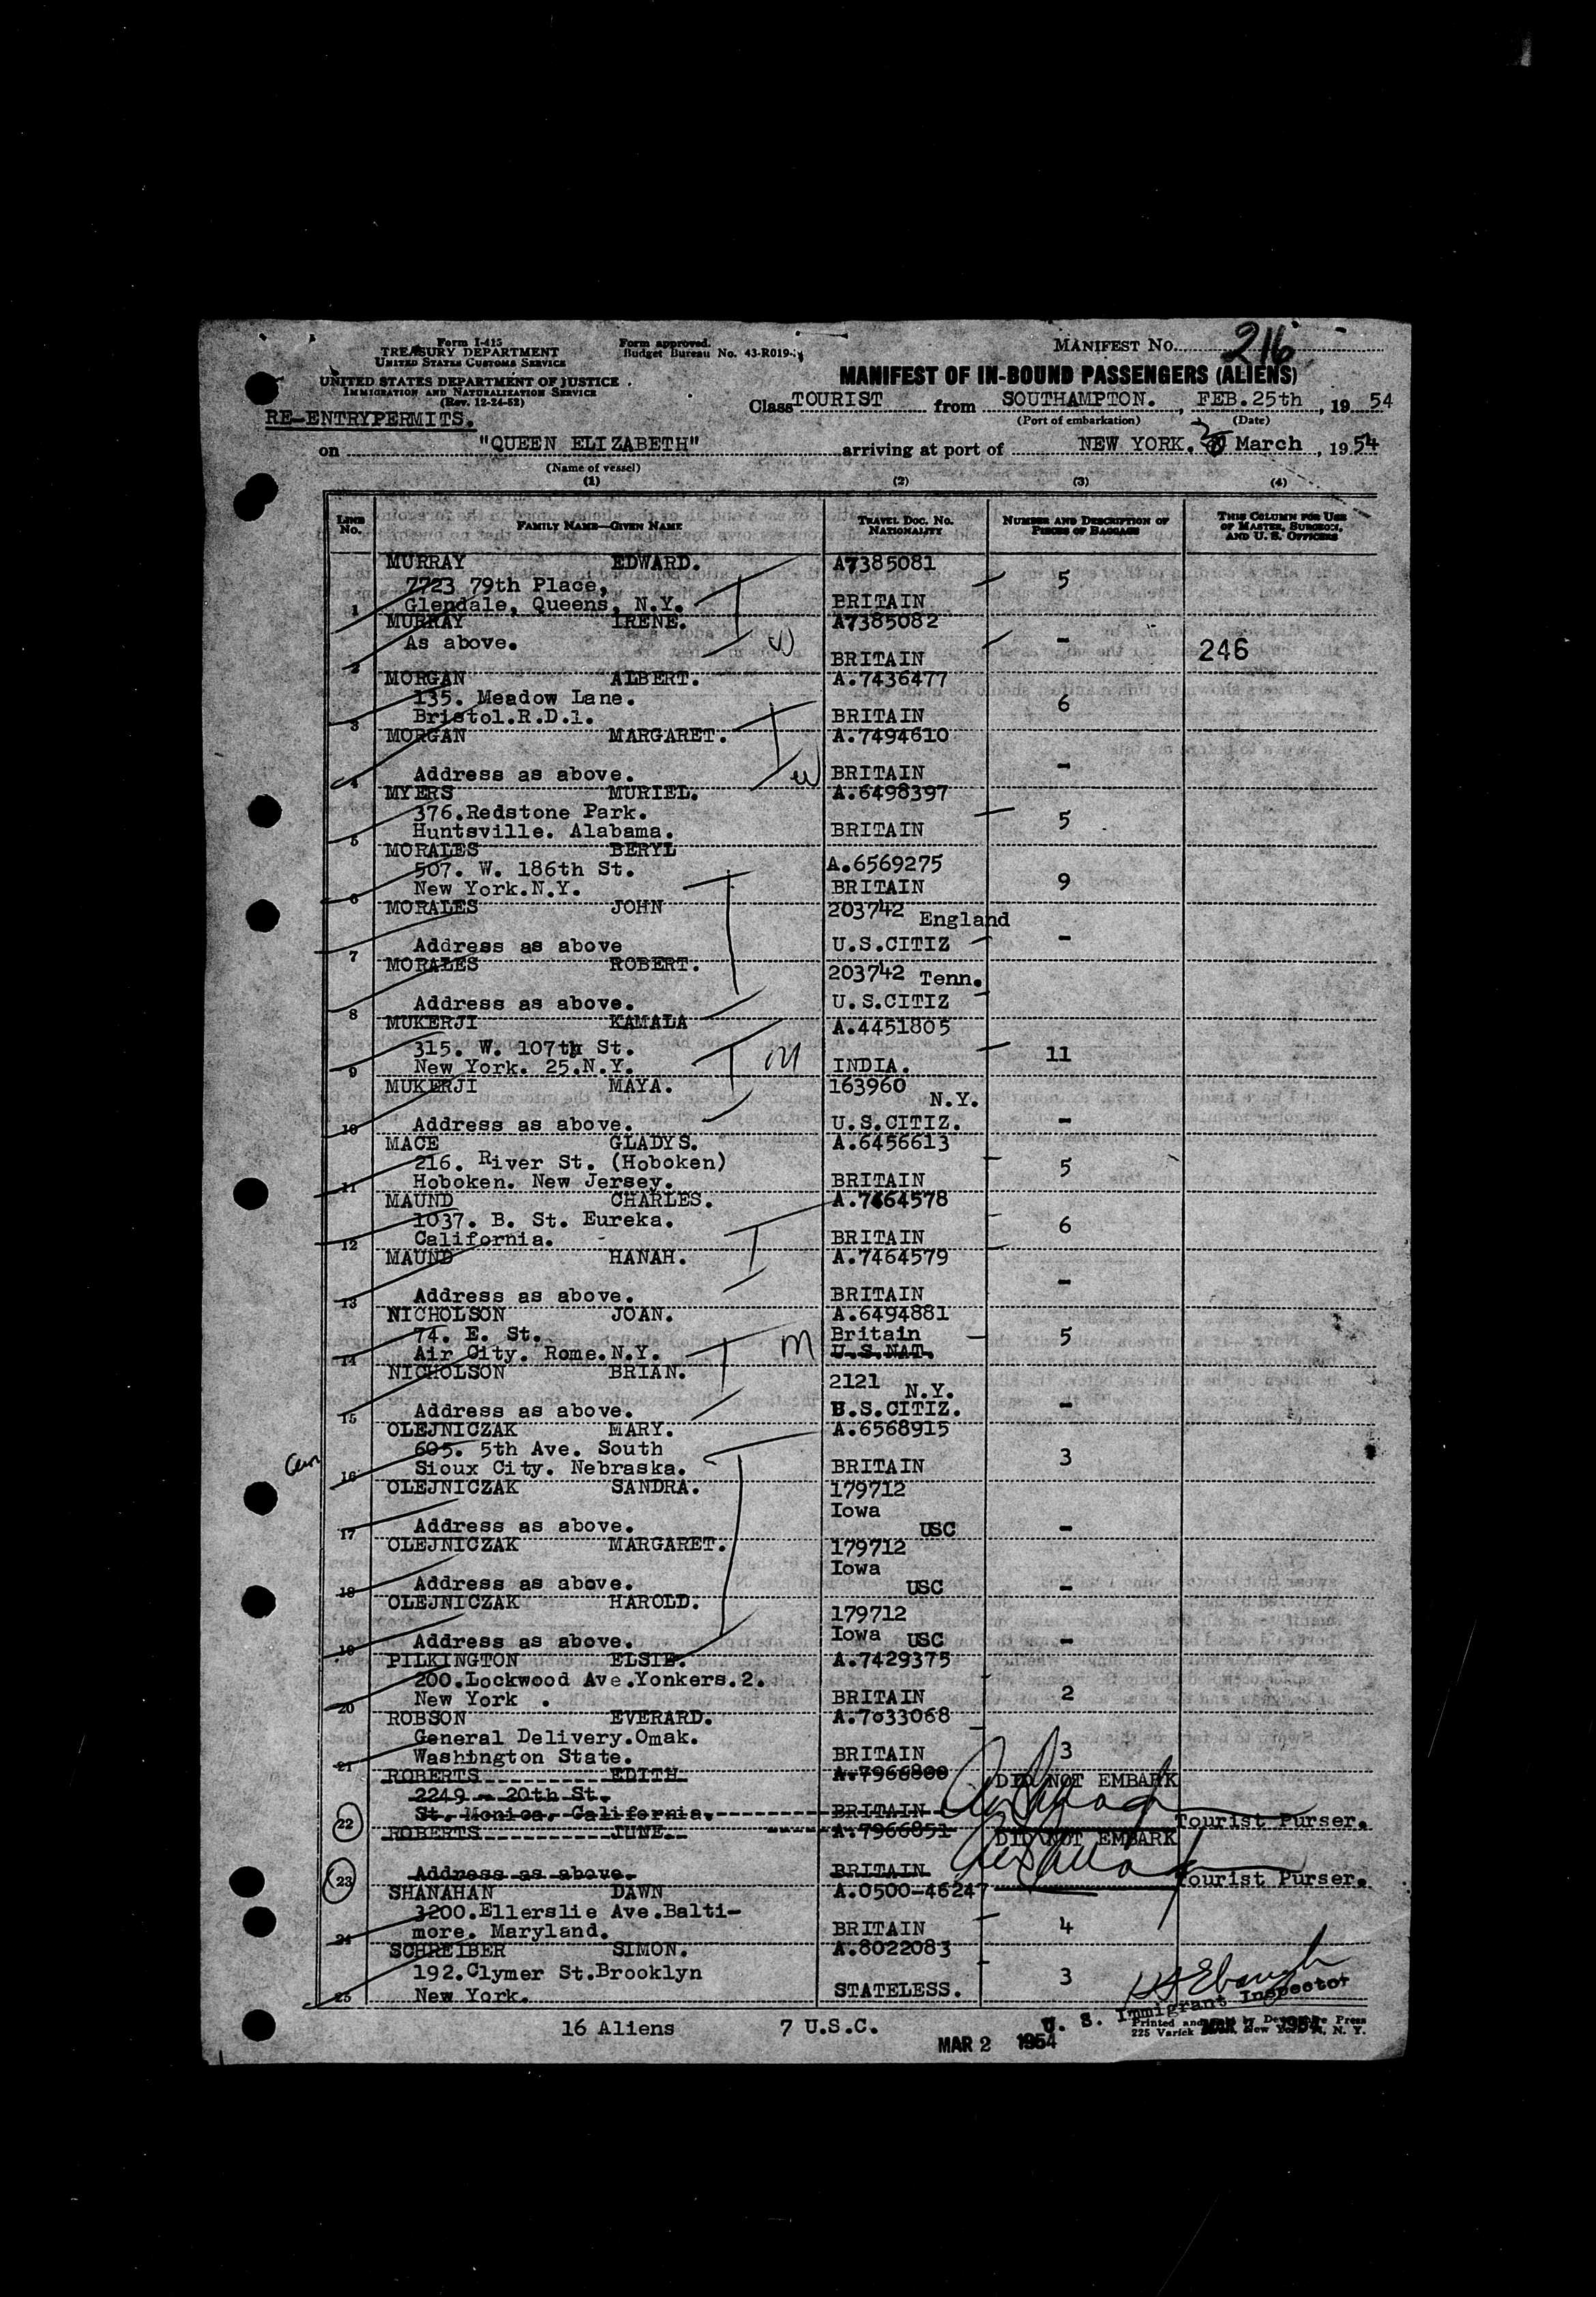 Form I-415
TREASURY DEPARTMENT
UNITED STATES CUSTOMS SERVICE
UNITED STATES DEPARTMENT OF JUSTICE
IMMIGRATION AND NATURALIZATION SERVICE
(Rev. 12-24-52)
RE-ENTRYPERMITS.
Form approved.
Budget Bureau No. 43-R019-
MANIFEST NO. 216
MANIFEST OF IN-BOUND PASSENGERS (ALIENS)
Class TOURIST from SOUTHAMPTON. , FEB.25th , 19 54
(Port of embarkation) (Date)
on "QUEEN ELIZABETH" arriving at port of NEW YORK. March , 1954
(Name of vessel)
(1) (2) (3) (4)
LINE NO. FAMILY NAME—GIVEN NAME TRAVEL DOC. NO. NATIONALITY NUMBER AND DESCRIPTION OF PIECES OF BAGGAGE THIS COLUMN FOR USE OF MASTER, SURGEON, AND U. S. OFFICERS
MURRAY EDWARD. A7385081
7723 79th Place, 5
1 Glendale, Queens, N.Y. BRITAIN
MURRAY IRENE. A7385082
As above. W - 246
2 BRITAIN
MORGAN ALBERT. A.7436477
135. Meadow Lane. 6
3 Bristol.R.D.1. BRITAIN
MORGAN MARGARET. A.7494610
4 Address as above. W BRITAIN -
MYERS MURIEL. A.6498397
376.Redstone Park. 5
5 Huntsville. Alabama. BRITAIN
MORALES BERYL A.6569275
507. W. 186th St.
6 New York.N.Y. BRITAIN 9
MORALES JOHN 203742 England
7 Address as above U.S.CITIZ -
MORALES ROBERT. 203742 Tenn.
8 Address as above. U.S.CITIZ
MUKERJI KAMALA A.4451805
315. W. 107th St. M 11
9 New York. 25.N.Y. INDIA.
MUKERJI MAYA. 163960
N.Y.
10 Address as above. U.S.CITIZ. -
MACE GLADYS. A.6456613
216. River St. (Hoboken) 5
11 Hoboken. New Jersey. BRITAIN
MAUND CHARLES. A.7464578
1037. B. St. Eureka. 6
12 California. BRITAIN
MAUND HANAH. A.7464579
13 Address as above. BRITAIN -
NICHOLSON JOAN. A.6494881
74. E. St. M Britain 5
14 Air City. Rome.N.Y. U.S.NAT.
NICHOLSON BRIAN. 2121 N.Y.
15 Address as above. U.S.CITIZ. -
OLEJNICZAK MARY. A.6568915
605. 5th Ave. South 3
16 Sioux City. Nebraska. BRITAIN
OLEJNICZAK SANDRA. 179712
Iowa
17 Address as above. USC -
OLEJNICZAK MARGARET. 179712
Iowa
18 Address as above. USC -
OLEJNICZAK HAROLD. 179712
19 Address as above. Iowa USC -
PILKINGTON ELSIE. A.7429375
200.Lockwood Ave.Yonkers.2.
20 New York . BRITAIN 2
ROBSON EVERARD. A.7033068
General Delivery.Omak.
21 Washington State. BRITAIN 3
ROBERTS EDITH A.7966800 DID NOT EMBARK
2249 - 20th St.
22 St. Monica. California. BRITAIN Tourist Purser.
ROBERTS JUNE A.7966851 DID NOT EMBARK
23 Address as above. BRITAIN Tourist Purser.
SHANAHAN DAWN A.0500-46247
3200.Ellerslie Ave.Balti-
24 more. Maryland. BRITAIN 4
SCHREIBER SIMON. A.8022083
192.Clymer St.Brooklyn 3
25 New York. STATELESS.
U. S. Immigrant Inspector
16 Aliens 7 U.S.C.
MAR 2 1954